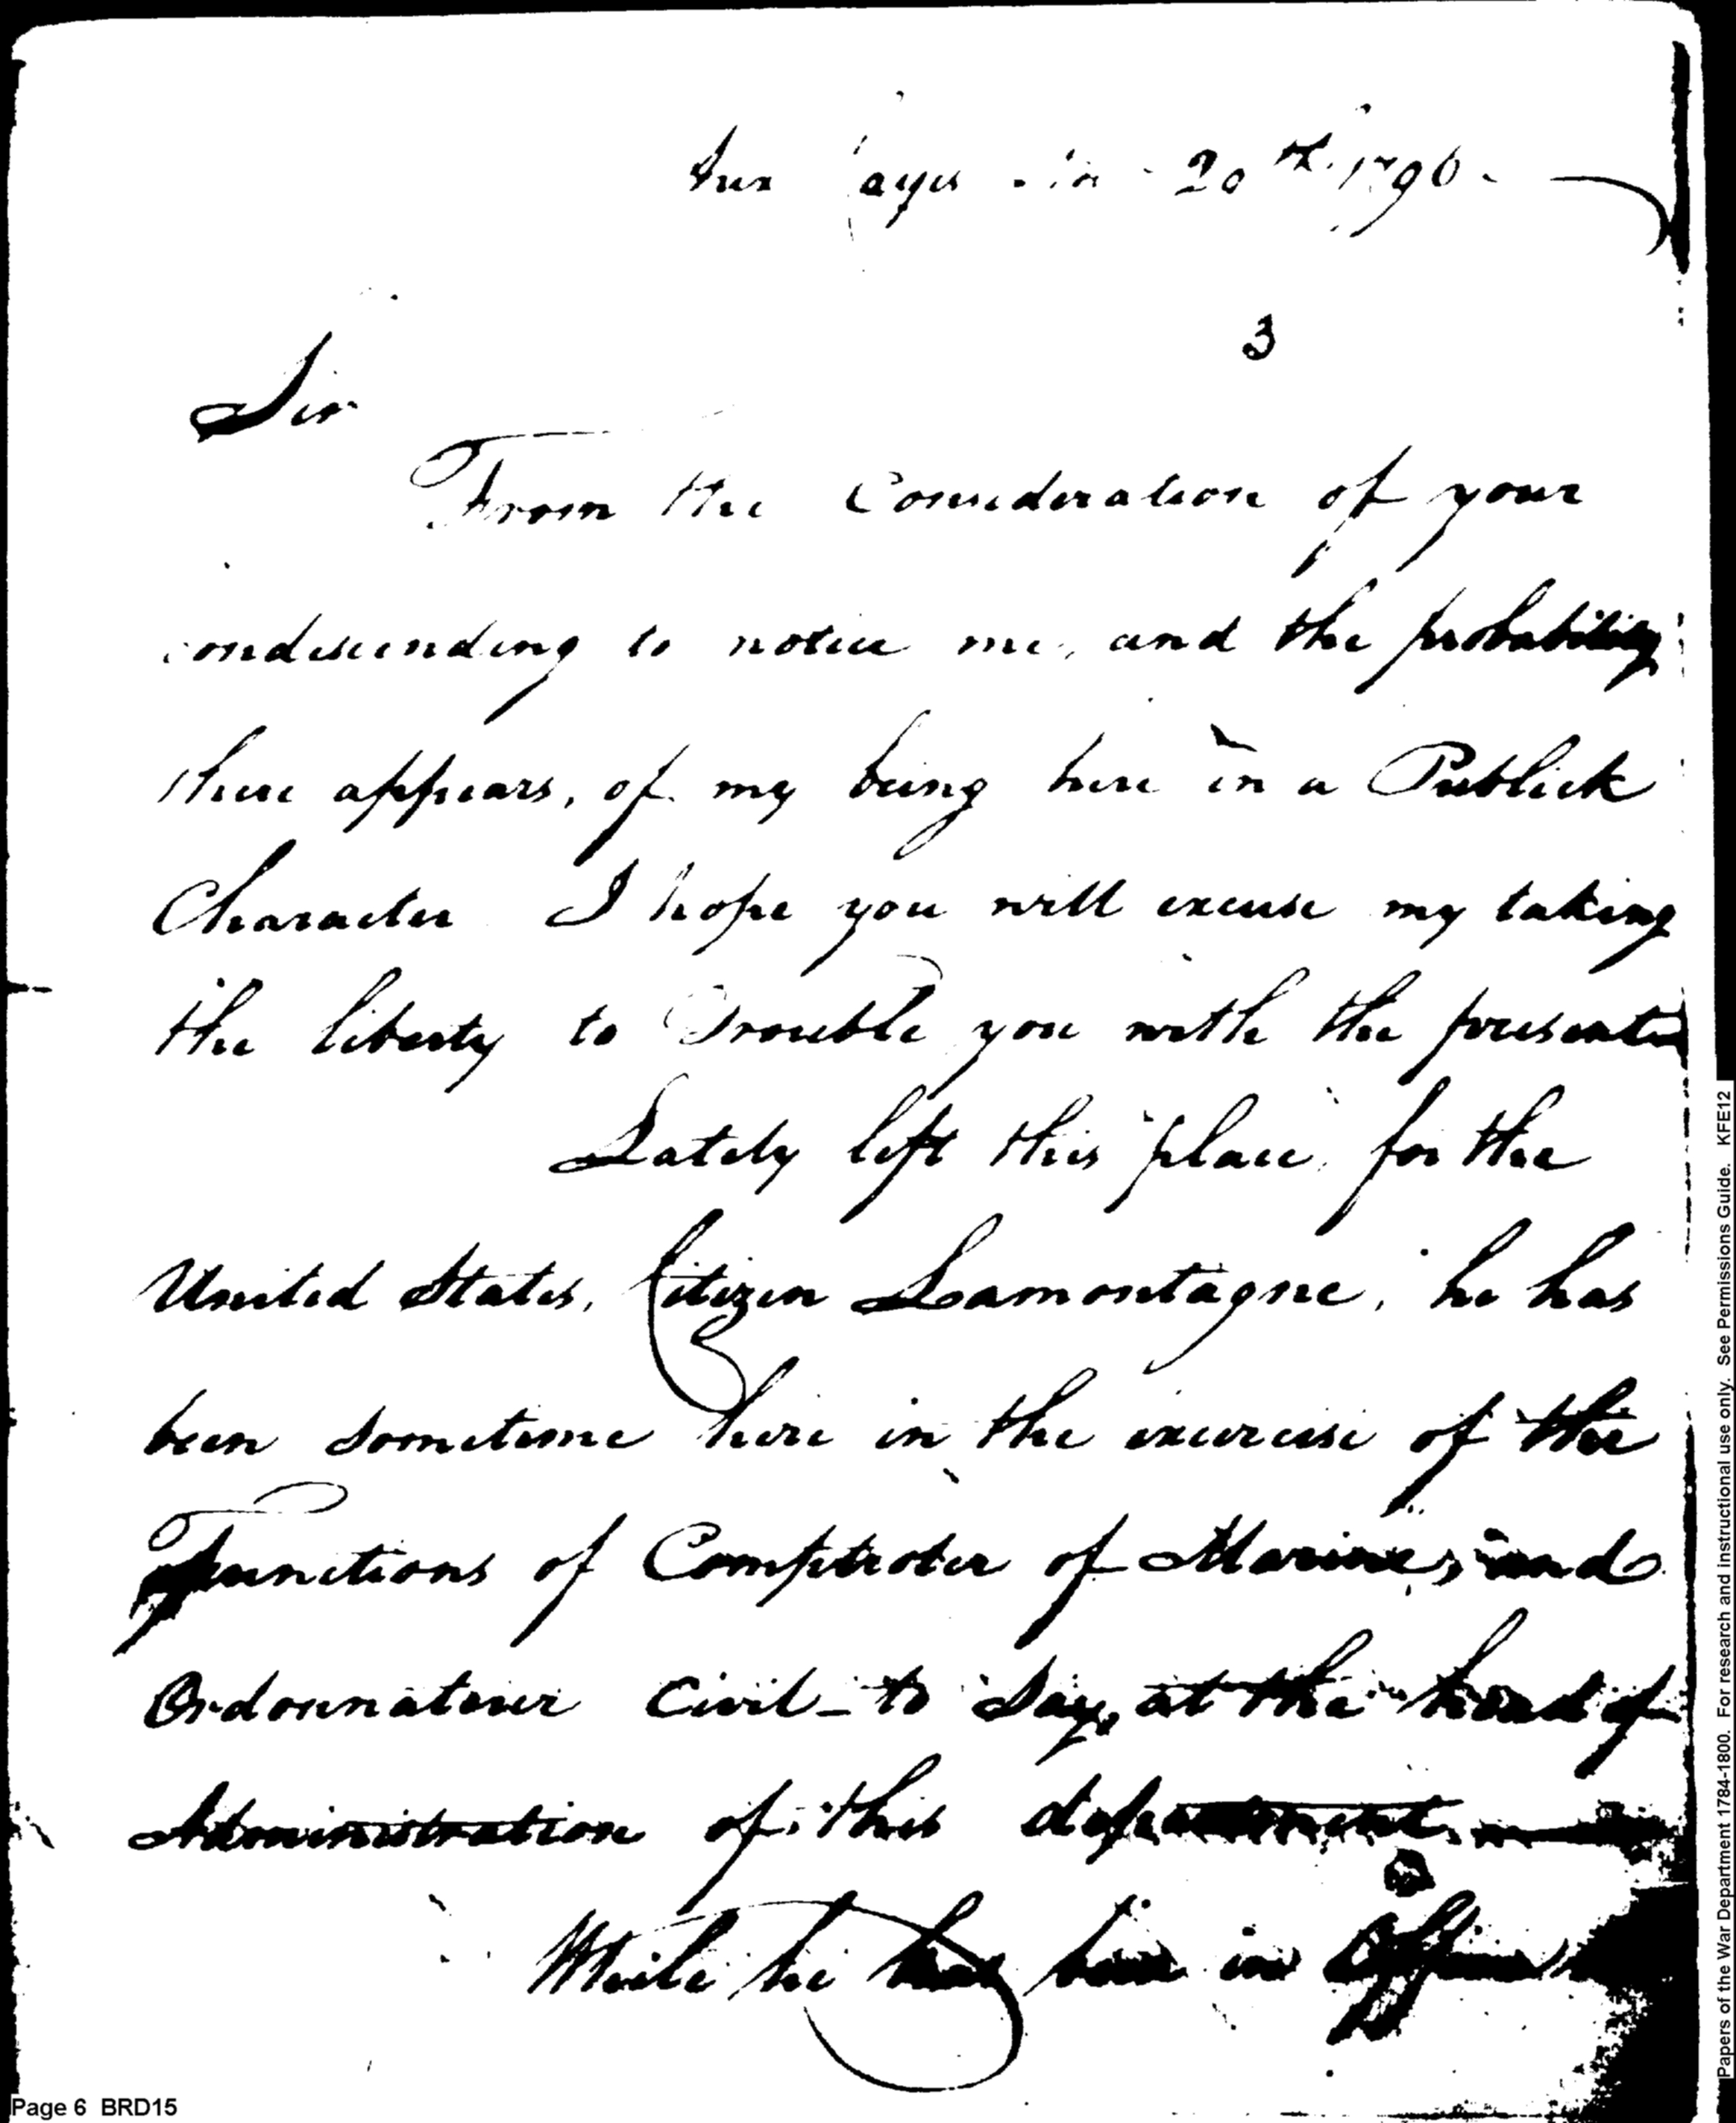 aux Cayes 20th. 1796.
3
Sir
From the Consideration of your
condescending to notice me, and the probability
there appears, of my being here in a Publick
Character I hope you will excuse my taking
the liberty to Trouble you with the present
Lately left this place for the
United States, Citizen Lamontagne, he has
been sometime here in the exercise of the
Functions of Comptroler of Marine, and
Ordonnateur Civil - to Say, at the head of
Administration of this department
While he has been in Office
Page 6 BRD15
Papers of the War Department 1784-1800. For research and instructional use only. See Permissions Guide. KFE12